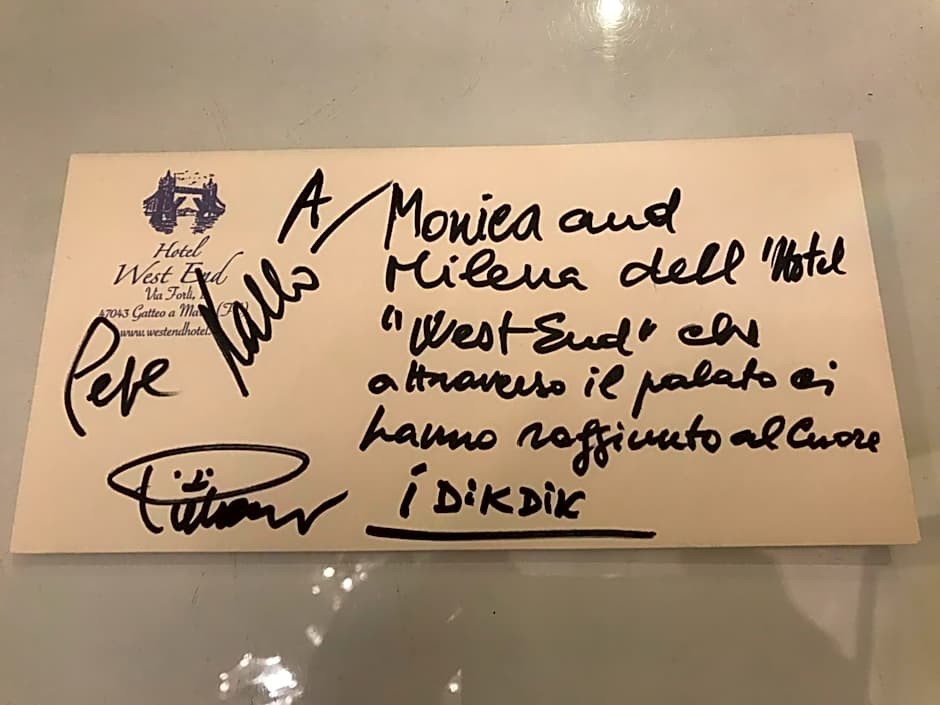 Hotel
West End
Via Forlì,
47043 Gatteo a Mare (F
www.westendhotel.
A/Monica and
Milena dell'Hotel
"West-End" che
attraverso il palato ci
hanno raggiunto al Cuore
i DiKDiK
Pepe